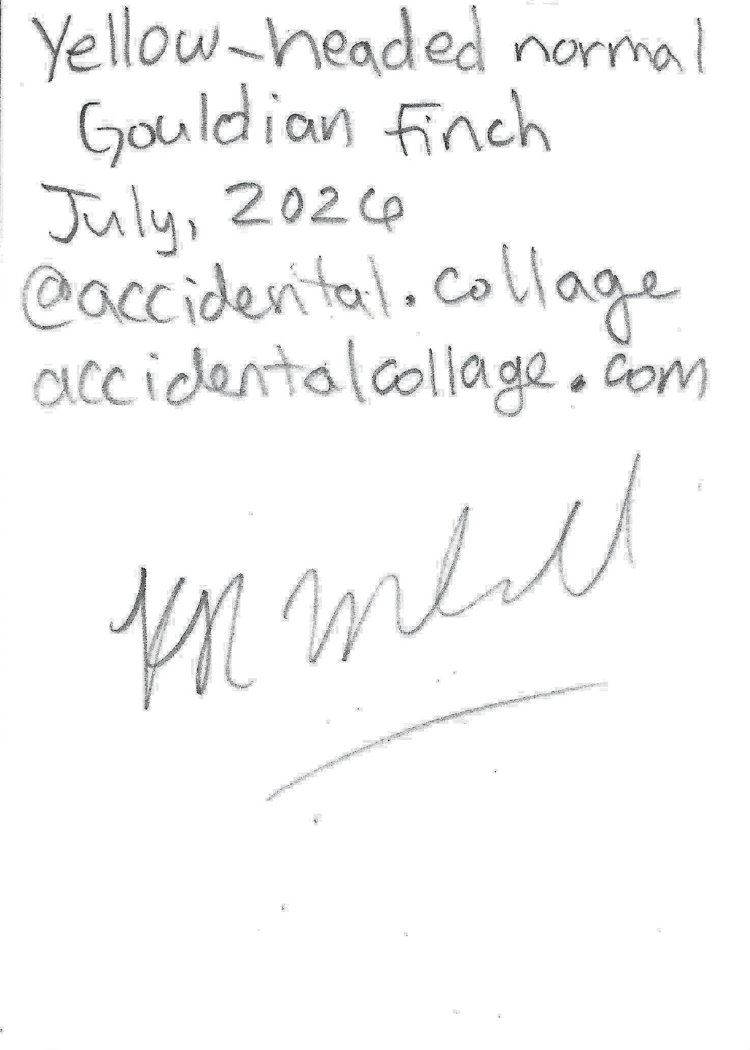 Yellow-headed normal
Gouldian finch
July, 2026
@accidental.collage
accidentalcollage.com